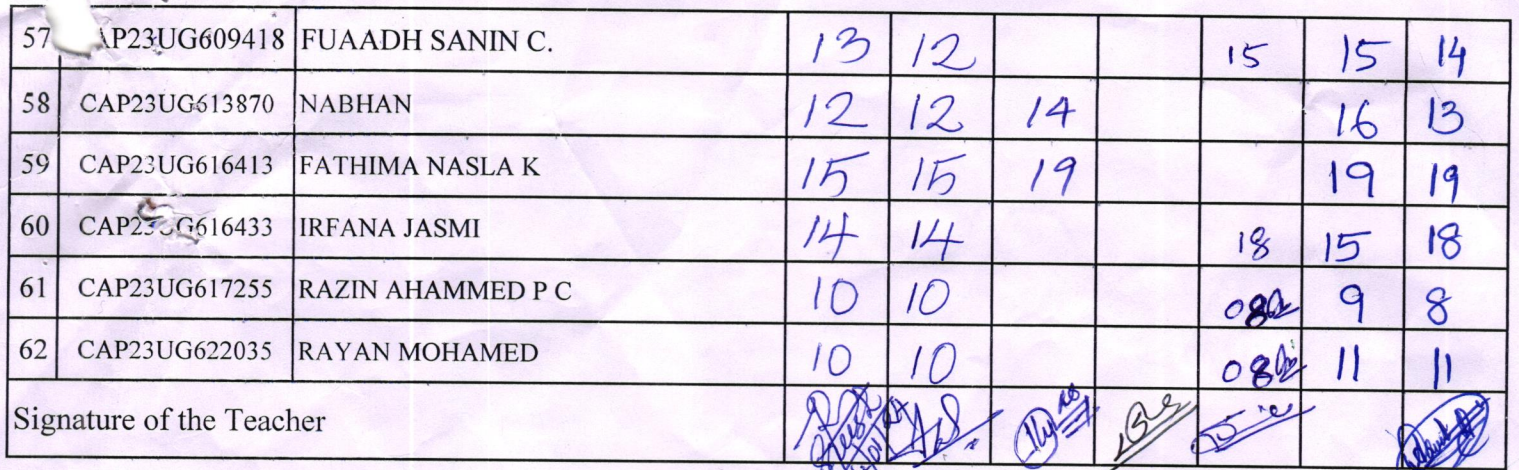 57 AP23UG609418 FUAADH SANIN C. 13 12 15 15 14
58 CAP23UG613870 NABHAN 12 12 14 16 13
59 CAP23UG616413 FATHIMA NASLA K 15 15 19 19 19
60 CAP23UG616433 IRFANA JASMI 14 14 18 15 18
61 CAP23UG617255 RAZIN AHAMMED P C 10 10 08 9 8
62 CAP23UG622035 RAYAN MOHAMED 10 10 08 11 11
Signature of the Teacher